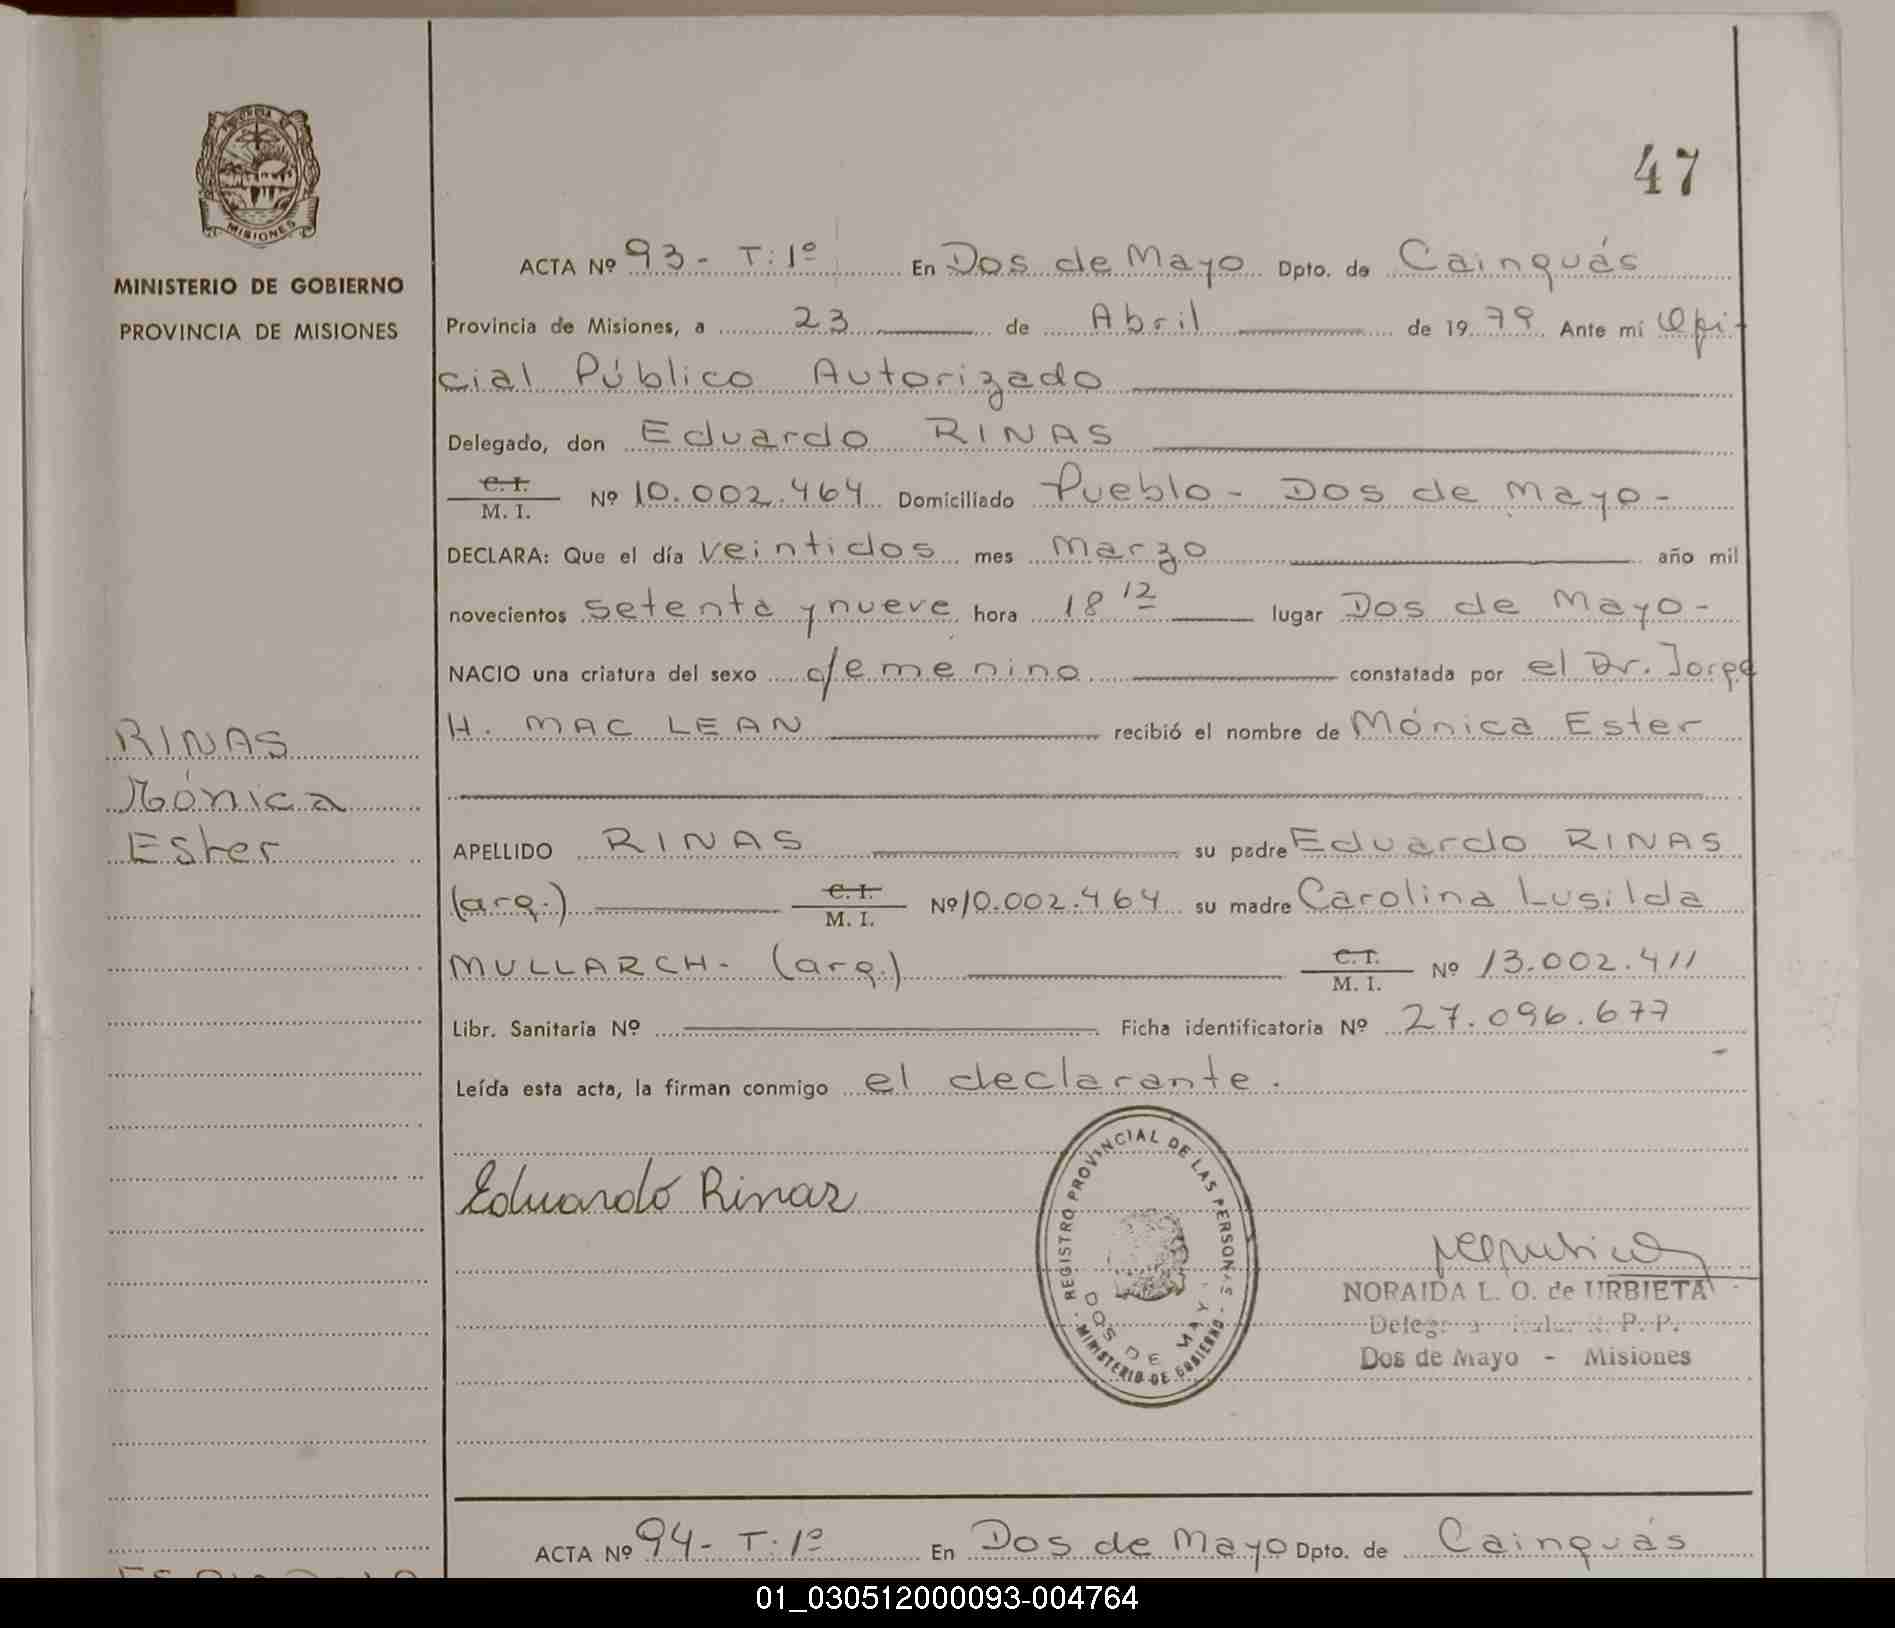 47
PROVINCIA DE
MISIONES
MINISTERIO DE GOBIERNO
PROVINCIA DE MISIONES
ACTA Nº 93 - T: 1º En Dos de Mayo Dpto. de Cainguás
Provincia de Misiones, a 23 de Abril de 1979 Ante mí Ofi-
cial Público Autorizado
Delegado, don Eduardo RINAS
C. I.
M. I. Nº 10.002.464 Domiciliado Pueblo - Dos de Mayo -
DECLARA: Que el día veintidos mes Marzo año mil
novecientos setenta y nueve hora 18 12 lugar Dos de Mayo -
NACIO una criatura del sexo femenino constatada por el Dr. Jorge
H. MAC LEAN recibió el nombre de Mónica Ester
RINAS
Mónica
Ester
APELLIDO RINAS su padre Eduardo RINAS
(arg.) C. I.
M. I. Nº 10.002.464 su madre Carolina Lusilda
MULLARCH - (arg.) C. I.
M. I. Nº 13.002.411
Libr. Sanitaria Nº Ficha identificatoria Nº 27.096.677
Leída esta acta, la firman conmigo el declarante.
Eduardo Rinas
REGISTRO PROVINCIAL DE LAS PERSONAS
MINISTERIO DE GOBIERNO
DOS DE MAYO
NORAIDA L. O. de URBIETA
R. P. P.
Dos de Mayo - Misiones
ACTA Nº 94 - T. 1º En Dos de Mayo Dpto. de Cainguás
01_030512000093-004764